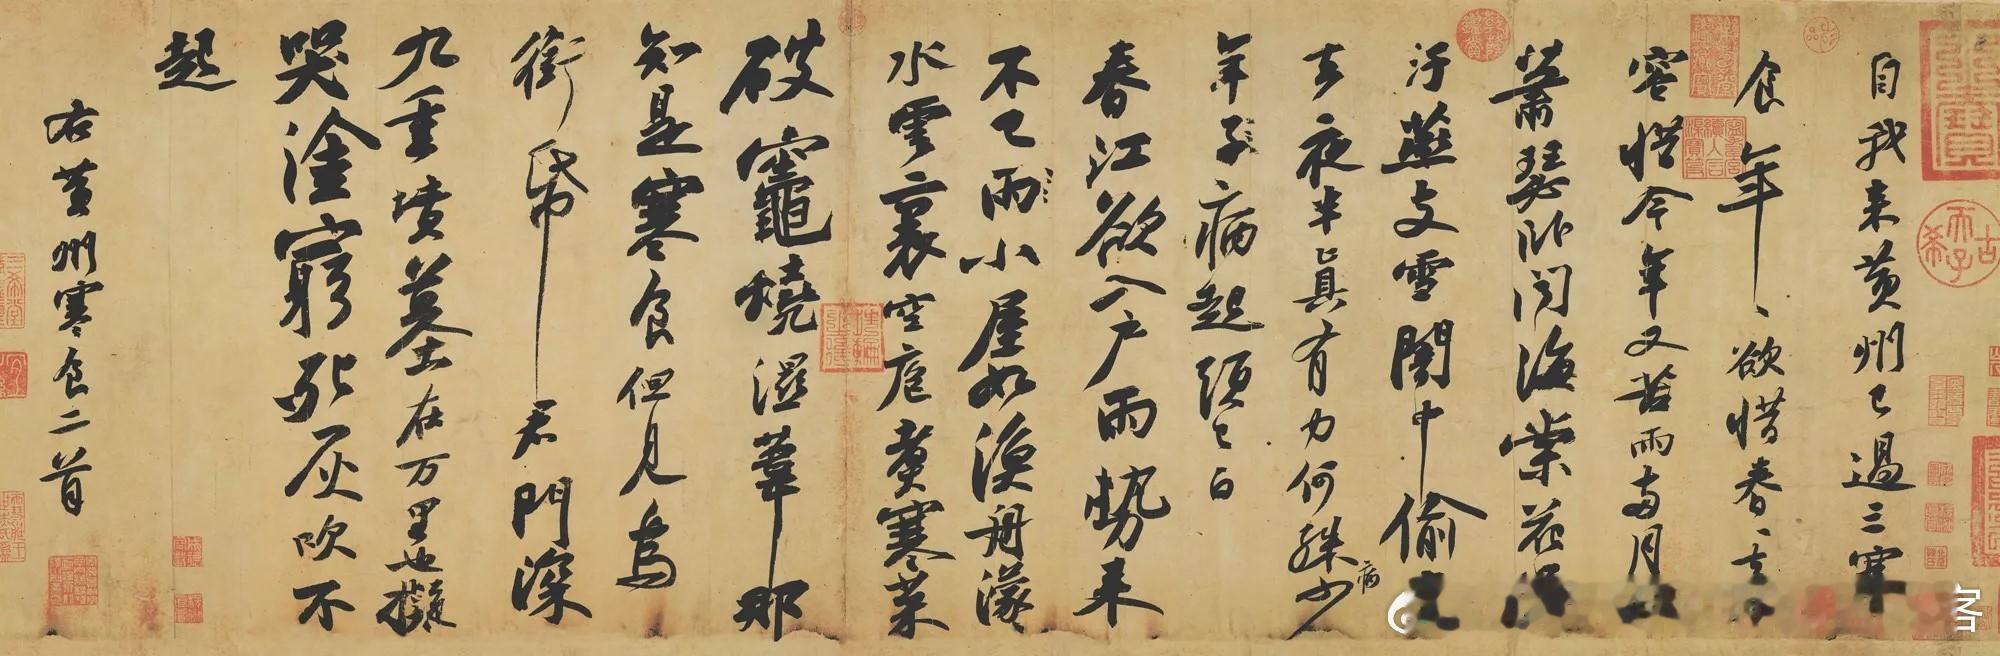 古希天子
自我來黃州已過三寒
食年〻欲惜春〻去
容惜今年又苦雨兩月
蕭瑟臥聞海棠花
汙燕支雪闇中偷
去夜半真有力何殊少
病
年子病起頭已白
春江欲入戶雨勢來
不已雨小屋如漁舟濛〻
水雲裏空庖煮寒菜
破竈燒濕葦那
知是寒食但見烏
銜帋君門深
九重墳墓在万里也擬
哭塗窮死灰吹不
起
右黃州寒食二首